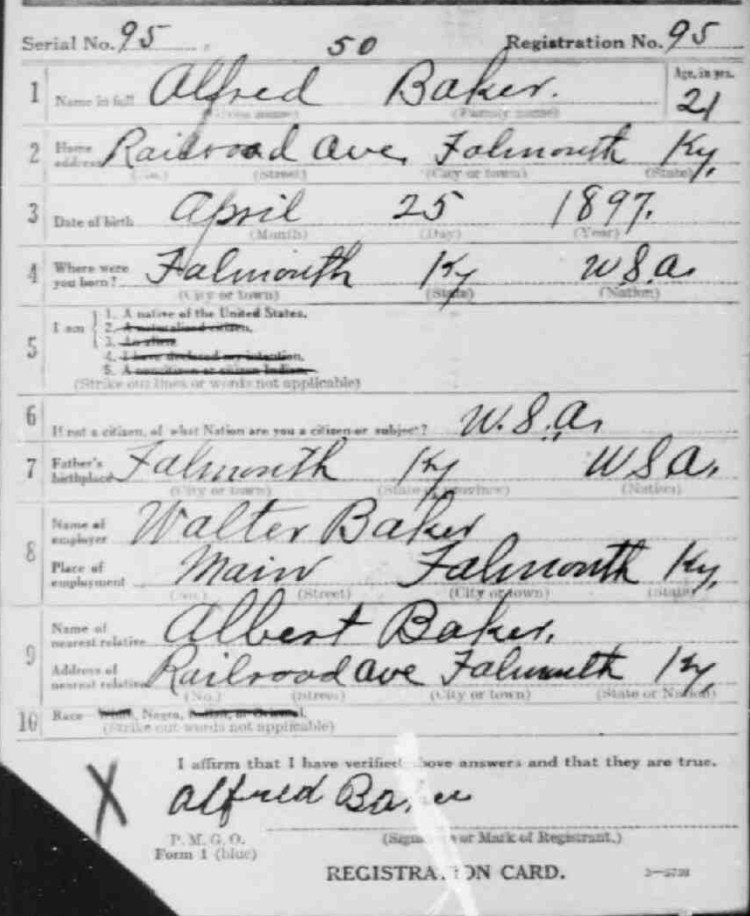 Serial No. 95 50 Registration No. 95
1 Name in full Alfred Baker. Age, in yrs. 21
(Given name) (Family name)
2 Home address Railroad Ave, Falmouth Ky,
(No.) (Street) (City or town) (State)
3 Date of birth April 25 1897.
(Month) (Day) (Year)
4 Where were you born? Falmouth Ky U.S.A.
(City or town) (State) (Nation)
5 I am
1. A native of the United States.
2. A naturalized citizen.
3. An alien.
4. I have declared my intention.
5. A noncitizen or citizen Indian.
(Strike out lines or words not applicable)
6 If not a citizen, of what Nation are you a citizen or subject? U.S.A.
7 Father's birthplace Falmouth Ky U.S.A.
(City or town) (State or province) (Nation)
8 Name of employer Walter Baker
Place of employment Main Falmouth Ky,
(No.) (Street) (City or town) (State)
9 Name of nearest relative Albert Baker.
Address of nearest relative Railroad Ave Falmouth Ky,
(No.) (Street) (City or town) (State or Nation)
10 Race White, Negro, Indian, or Oriental.
(Strike out words not applicable)
I affirm that I have verified above answers and that they are true.
X Alfred Baker
P. M. G. O.
Form 1 (blue)
(Signature or Mark of Registrant.)
REGISTRATION CARD.